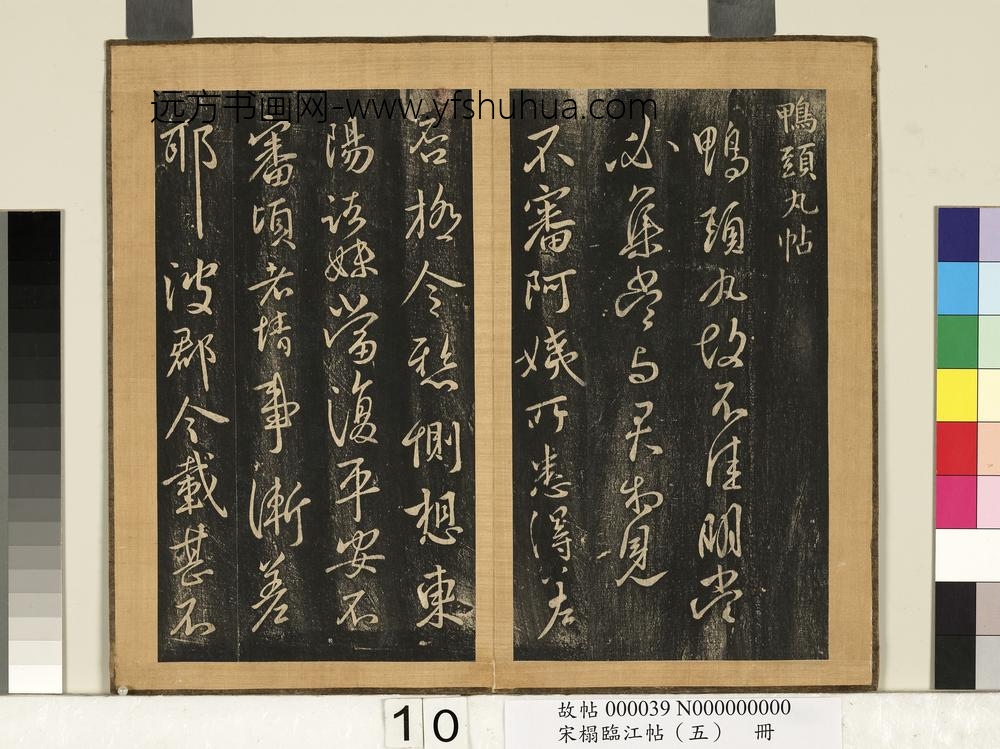 远方书画网-www.yfshuhua.com
鴨頭丸帖
鴨頭丸故不佳明當
必集當与君相見
不審阿姨所患得差
否極令愁惻想東
陽諸妹當復平安不
審頃者情事漸差
耶彼郡令載甚不
10
故帖 000039 N000000000
宋榻臨江帖（五） 冊